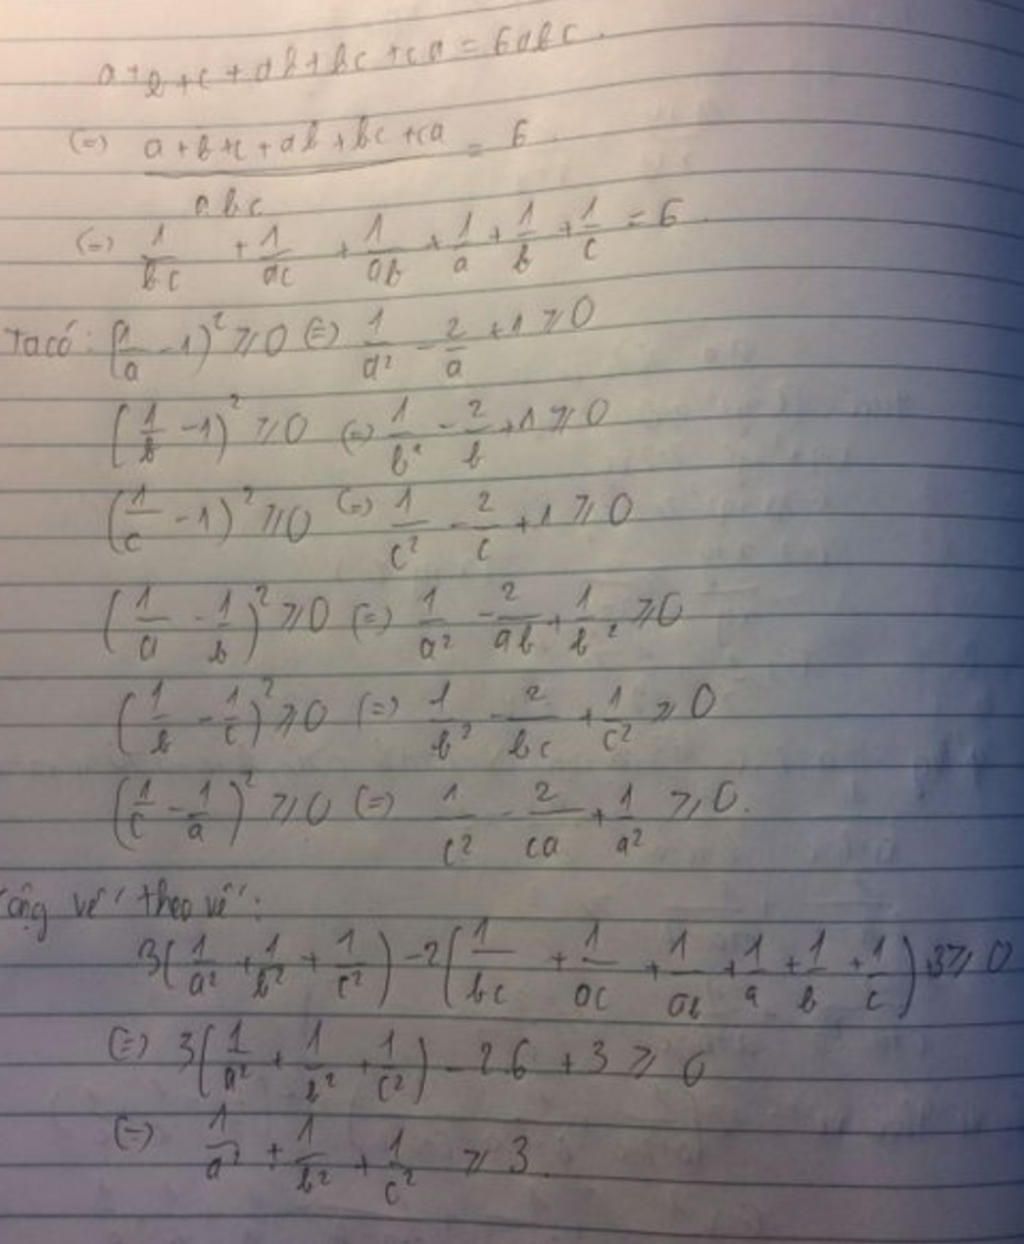 a + b + c + ab + bc + ca = 6abc.
(=) (a + b + c + ab + bc + ca)/abc = 6.
(=) 1/bc + 1/ac + 1/ab + 1/a + 1/b + 1/c = 6.
Ta có: (1/a - 1)² ≥ 0 (=) 1/a² - 2/a + 1 ≥ 0
(1/b - 1)² ≥ 0 (=) 1/b² - 2/b + 1 ≥ 0
(1/c - 1)² ≥ 0 (=) 1/c² - 2/c + 1 ≥ 0
(1/a - 1/b)² ≥ 0 (=) 1/a² - 2/ab + 1/b² ≥ 0
(1/b - 1/c)² ≥ 0 (=) 1/b² - 2/bc + 1/c² ≥ 0
(1/c - 1/a)² ≥ 0 (=) 1/c² - 2/ca + 1/a² ≥ 0.
Cộng vế theo vế:
3(1/a² + 1/b² + 1/c²) - 2(1/bc + 1/ac + 1/ab + 1/a + 1/b + 1/c) + 3 ≥ 0
(=) 3(1/a² + 1/b² + 1/c²) - 2.6 + 3 ≥ 0
(=) 1/a² + 1/b² + 1/c² ≥ 3.